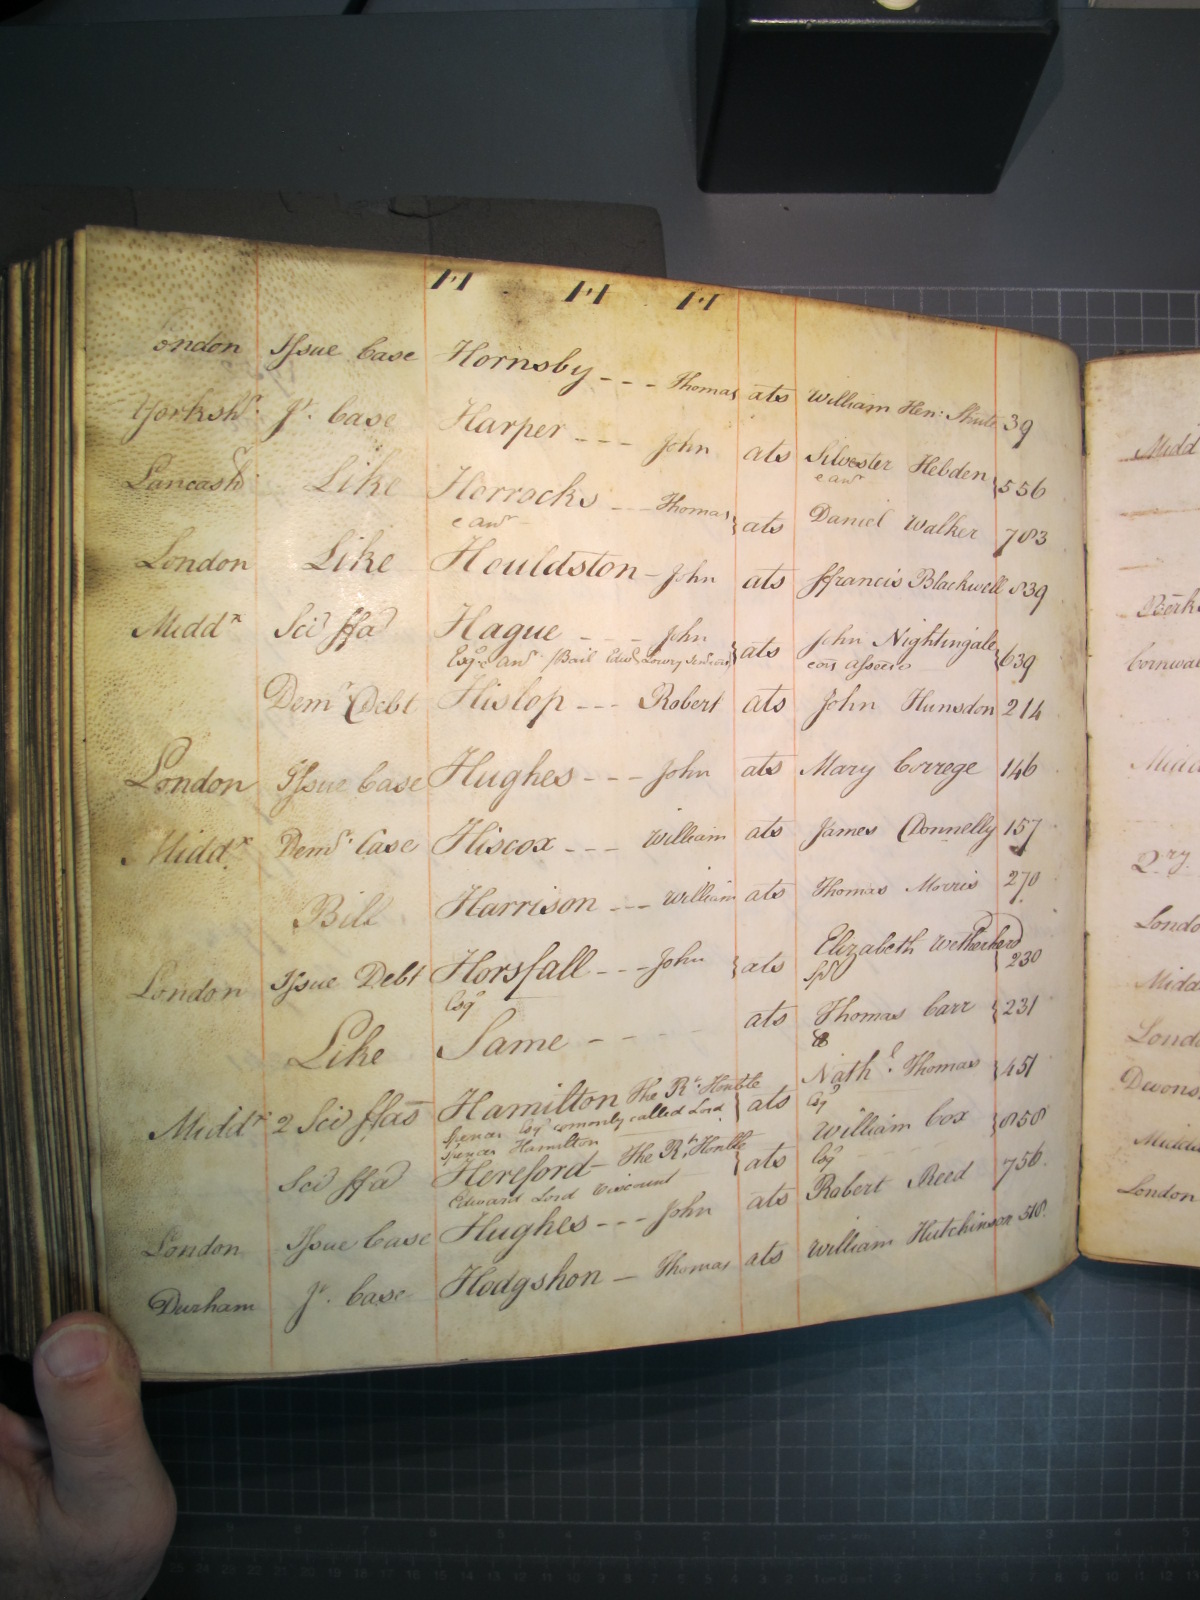 H H H
ondon Issue Case Hornsby --- Thomas ats William Hen: Shute 39
Yorkshr. Jt. Case Harper --- John ats Silvester Hebden 556
e anr
Lancashr Like Horrocks --- Thomas ats Daniel Walker 783
e anr
London Like Houldston - John ats ffrancis Blackwell 839
Middx Sci ffa Hague --- John ats John Nightingale 639
Esqr e anr Bail Edwd Lowry
Demr Debt Hislop --- Robert ats John Hunsdon 214
London Issue Case Hughes --- John ats Mary Correge 146
Middx Demr Case Hiscox --- William ats James Connelly 157
Bill Harrison --- William ats Thomas Morris 270
London Issue Debt Horsfall --- John ats Elizabeth Wetherherd 230
Esqr spr
Like Same --- ats Thomas Carr 231
Middx 2 Sci ffas Hamilton The Rt. Honble ats Nathl. Thomas 451
Spencer Esqr comonly called Lord Esqr
Spencer Hamilton
Sci ffa Hereford - The Rt. Honble ats William Cox 858
Edward Lord Viscount Esqr
London Issue Case Hughes --- John ats Robert Reed 756
Durham Jt. Case Hodgshon - Thomas ats William Hutchinson 518
Midd
Cornwal
Qry
Londo
Midd
Londo
Devons
London